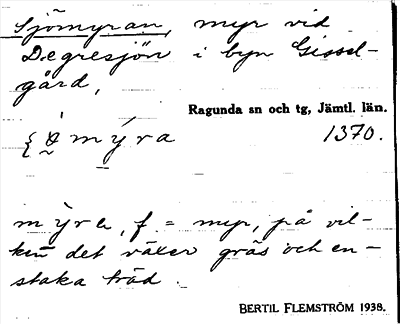 Sjömyran, myr vid
Degresjön i byn Gissel-
gård,
Ragunda sn och tg, Jämtl. län.
mýra 1370.
mỳra, f. = myr, på vil-
ken det växer gräs och en-
staka träd.
BERTIL FLEMSTRÖM 1938.